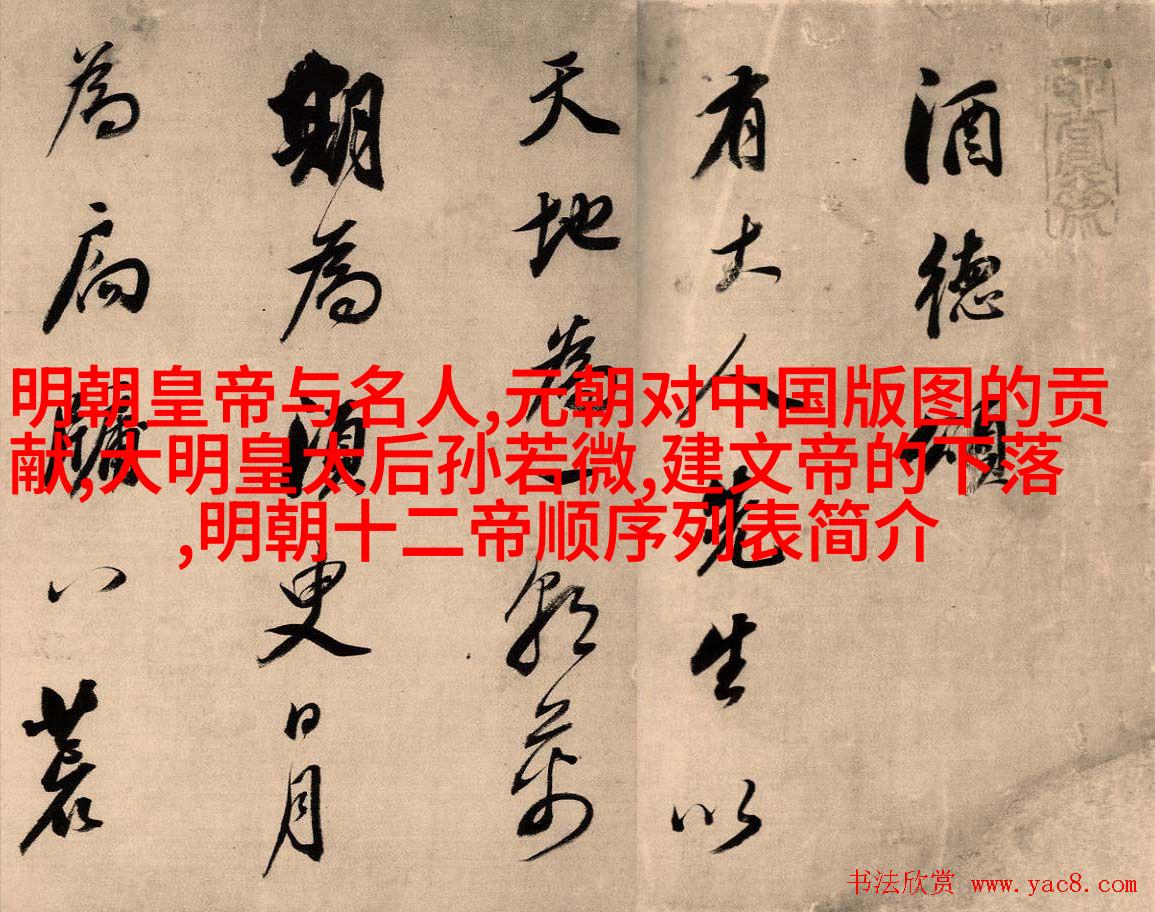 酒德頌
有大人先生以
天地為一朝萬
期為須臾日月
為扃牖八荒
明朝皇帝与名人,元朝对中国版图的贡
献,大明皇太后孙若微,建文帝的下落
,明朝十二帝顺序列表简介
书法欣赏 www.yac8.com